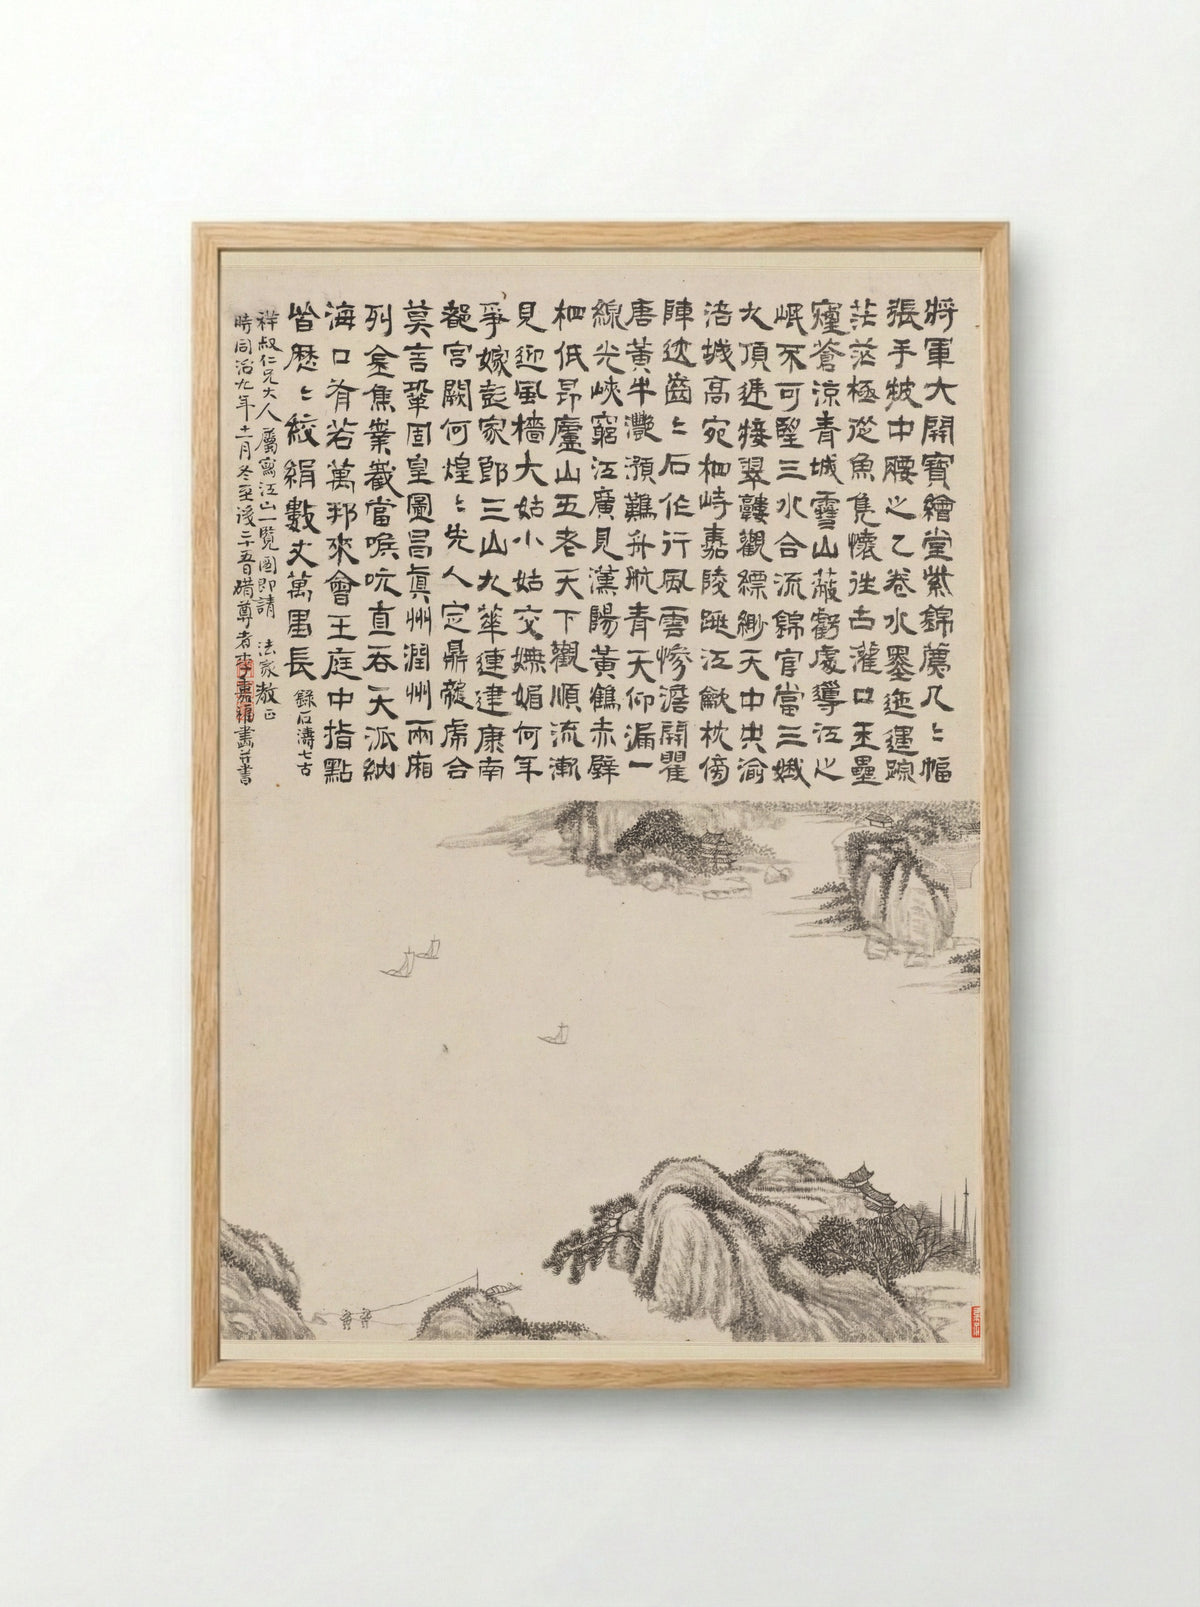 將軍大開寶繪堂紫錦薦几〻幅
張手披中腰之乙卷水墨迤邐蹤
茫茫極從魚鳧懷往古灌口玉壘
窪蒼涼青城雪山蔽虧處導江之
岷不可望三水合流錦官當三峨
大頂遞接翠靉觀縹緲天中央渝
涪城高宛相峙嘉陵跳江歙枕傍
陣迹齒〻石作行風雲慘澹開瞿
唐黃牛灩澦難舟航青天仰漏一
線光峽窮江廣見漢陽黃鶴赤壁
相低昂廬山五老天下觀順流漸
見迎風檣大姑小姑交嫵媚何年
爭嫁彭家郎三山九華連建康南
都宮闕何煌〻先人定鼎龍虎合
莫言鞏固皇圖昌真州潤州兩廂
列金焦業嶻當喉吭直吞天派納
海口有若萬邦來會王庭中指點
皆歷〻絞絹數丈萬里長 錄石濤七古
祥叔仁兄大人屬寫江山一覽圖即請 法家教正
時同治九年十一月冬至後三日 尊者李嘉福畫并書